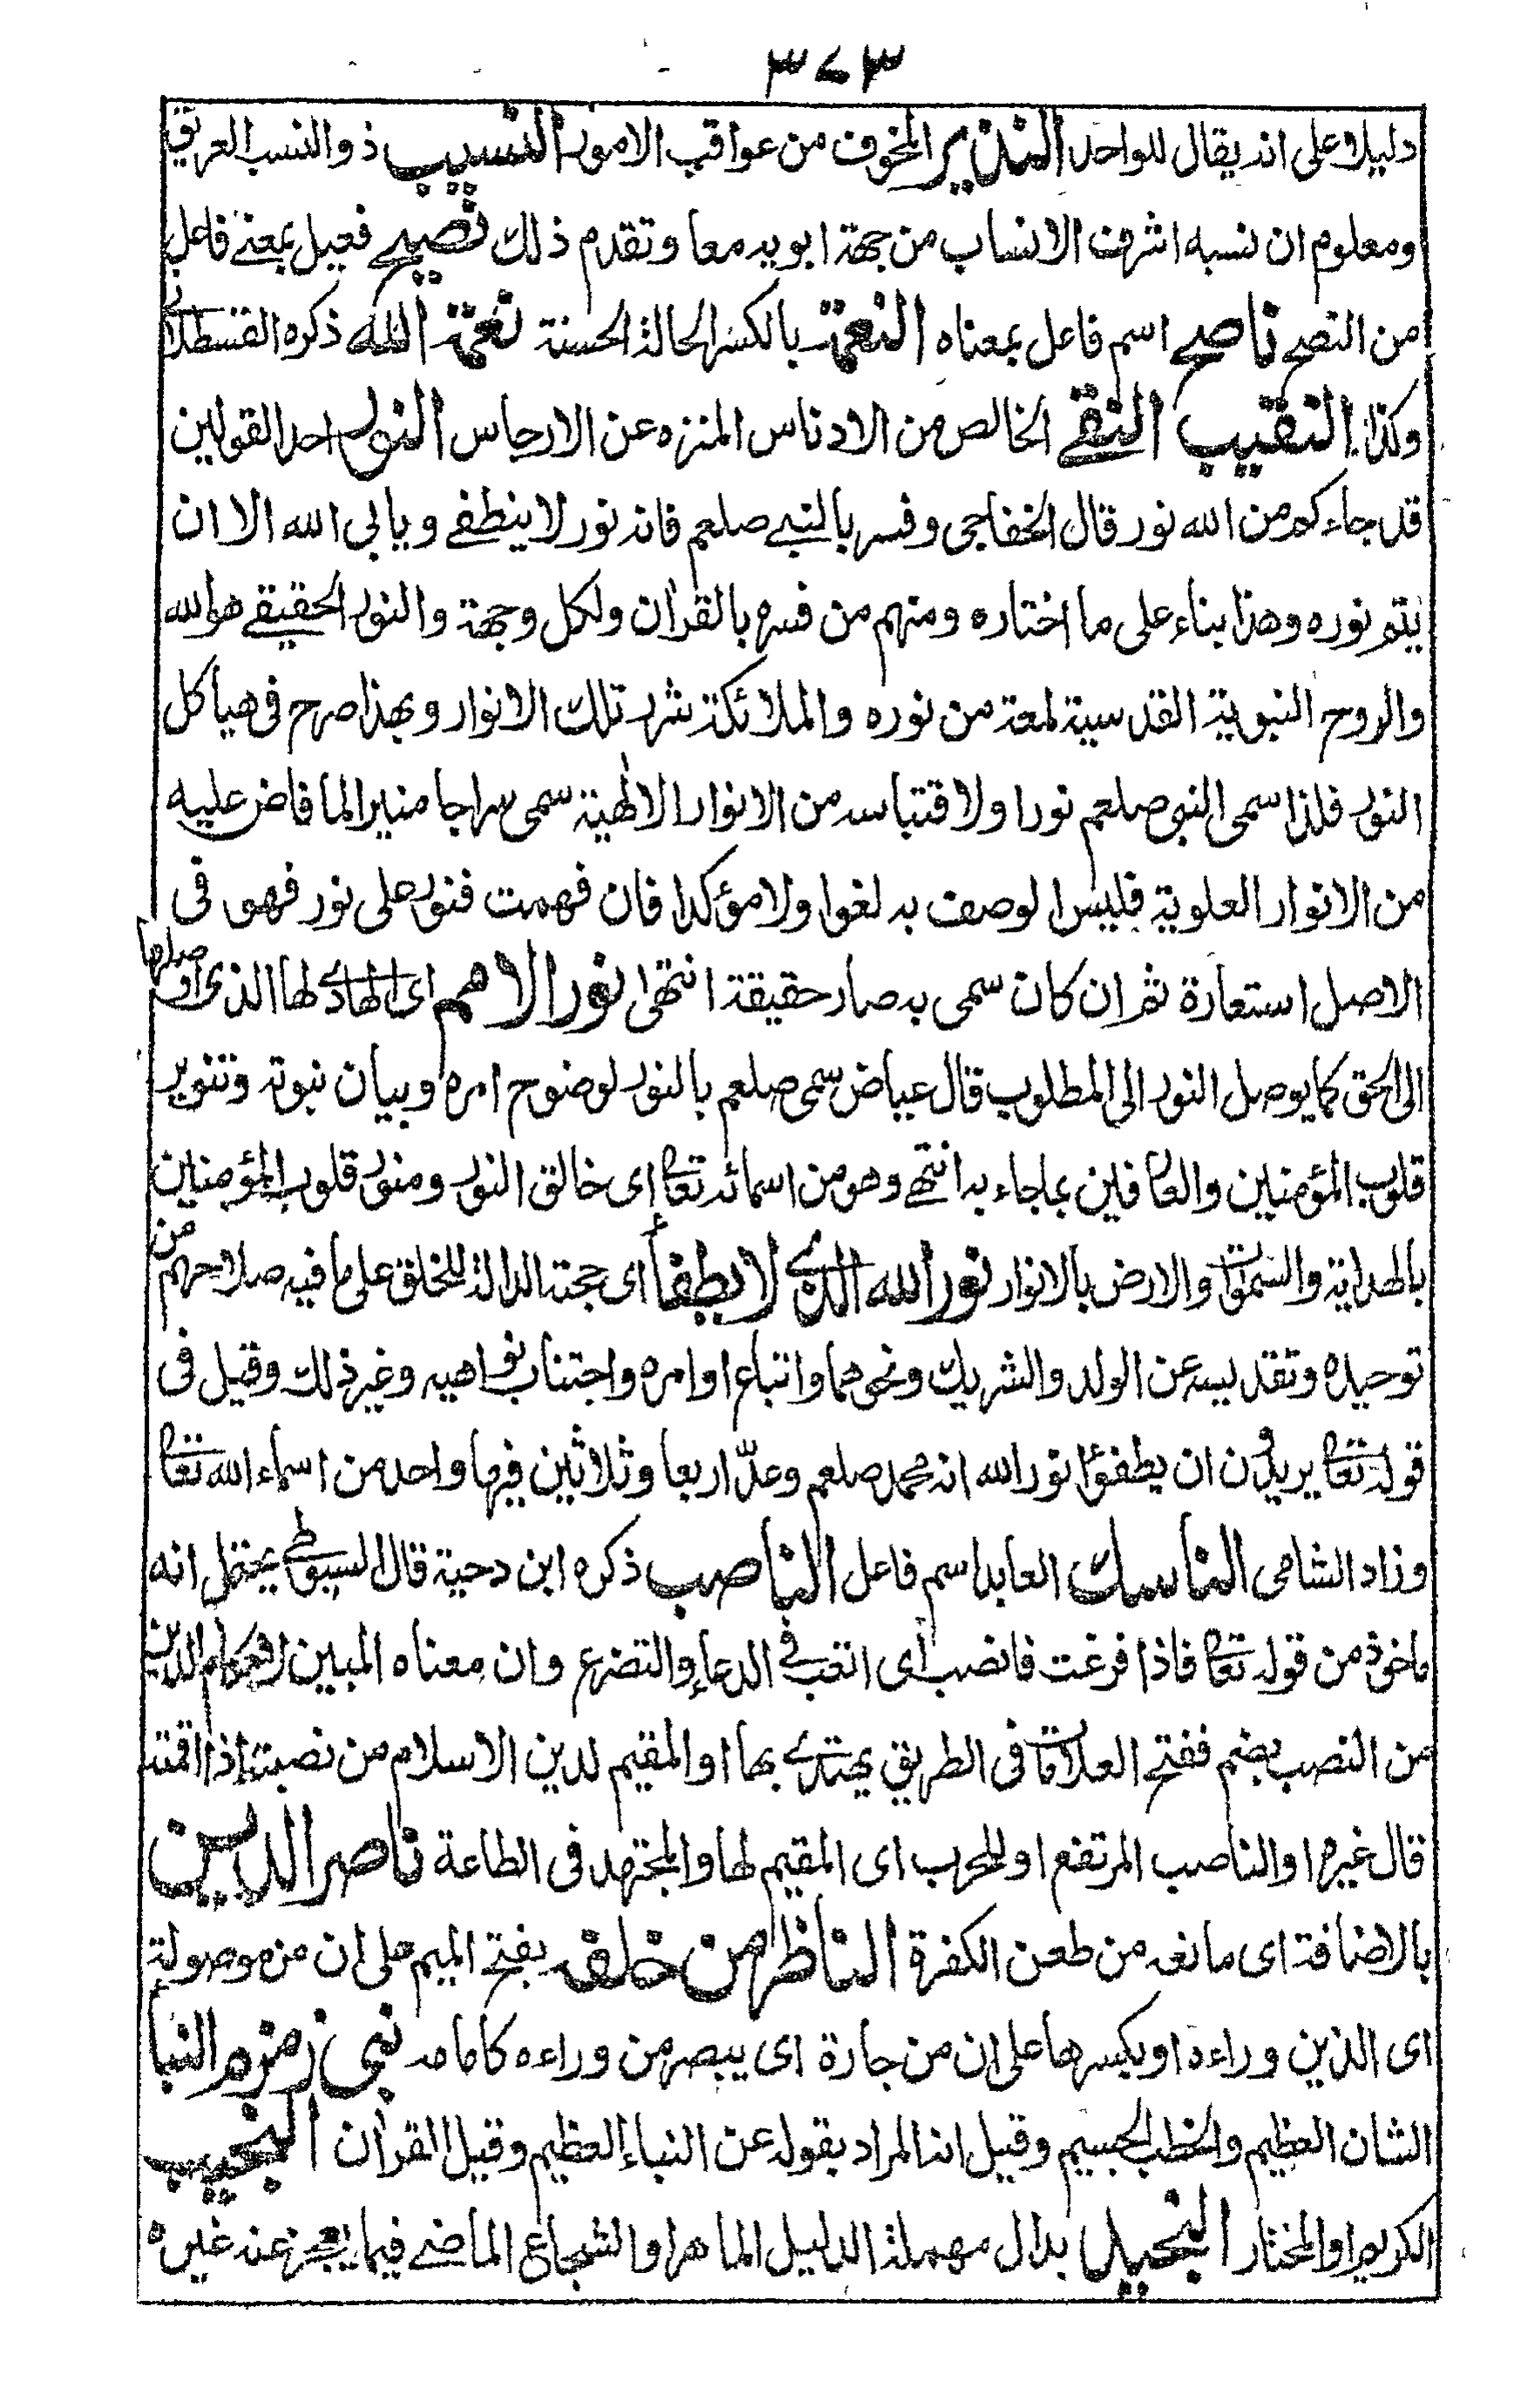 ٣٧٣
دليلا وعلى انه يقال للواحد النذير المخوف من عواقب الامور النسيب ذو النسب العريق
ومعلوم ان نسبه اشرف الانساب من جهة ابويه معا وتقدم ذلك نصيح فعيل بمعنى فاعل
من النصح ناصح اسم فاعل بمعناه النعمة بالكسر الحالة الحسنة نعمة الله ذكره القسطلانى
وكذا النقيب النقى الخالص من الادناس المنزه عن الارجاس النور احد القولين
قد جاءكم من الله نور قال الخفاجى وفسر بالنبى صلعم فانه نور لا ينطفى ويابى الله الا ان
يتم نوره وهذا بناء على ما اختاره ومنهم من فسره بالقران ولكل وجهة والنور الحقيقى هو الله
والروح النبوية القدسية لمعة من نوره والملائكة شرر تلك الانوار وبهذا صرح فى هياكل
النور فلذا سمى النبى صلعم نورا ولاقتباسه من الانوار الالهية سمى سراجا منيرا لما فاض عليه
من الانوار العلوية فليس الوصف به لغوا ولا مؤكدا فان فهمت فنور على نور فهو فى
الاصل استعارة ثم ان كان سمى به صار حقيقة انتهى نور الامم اى الهادى لها الذى اوصلها
الى الحق كما يوصل النور الى المطلوب قال عياض سمى صلعم بالنور لوضوح امره وبيان نبوته وتنوير
قلوب المؤمنين والعارفين بما جاء به انتهى وهو من اسمائه تعا اى خالق النور ومنور قلوب المؤمنين
بالهداية والسموات والارض بالانوار نور الله الذى لا يطفأ اى حجته الدالة للخلق على ما فيه صلاحهم من
توحيده وتقديسه عن الولد والشريك ونحوهما واتباع اوامره واجتناب نواهيه وغير ذلك وقيل فى
قوله تعا يريدون ان يطفؤا نور الله انه محمد صلعم وعدّ اربعا وثلاثين فيها واحد من اسماء الله تعا
وزاد الشامى الناسك العابد اسم فاعل الناصب ذكره ابن دحية قال السيوطى يحتمل انه
ماخوذ من قوله تعا فاذا فرغت فانصب اى اتعب فى الدعاء والتضرع وان معناه المبين لاحكام الدين
من النصب بضم ففتح العلامات فى الطريق يهتدى بها او المقيم لدين الاسلام من نصبته اذا اقمته
قال غيره او الناصب المرتفع او للحرب اى المقيم لها والمجتهد فى الطاعة ناصر الدين
بالاضافة اى مانعه من طعن الكفرة الناظر من خلفه بفتح الميم على ان من موصولة
اى الذين وراءه او بكسرها على ان من جارة اى يبصر من وراءه كامامه نبى زمزم النبأ
الشان العظيم والخطب الجسيم وقيل انه المراد بقوله عن النباء العظيم وقيل القران النجيب
الكريم او المختار النجيد بدال مهملة الدليل الماهر او الشجاع الماضى فيما يعجز عنه غيره